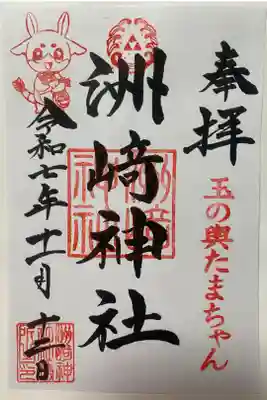 奉拝
玉の輿たまちゃん
洲崎神社
令和七年十一月十二日